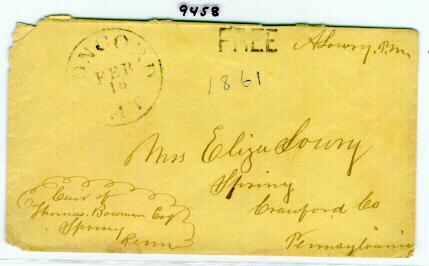 9458
FREE
A Lowry, P.m.
FEB
18
1861
Mrs Eliza Lowry
Spring
Crawford Co
Pennsylvania
Care of
Thomas Bowman Esq
Spring
Penn